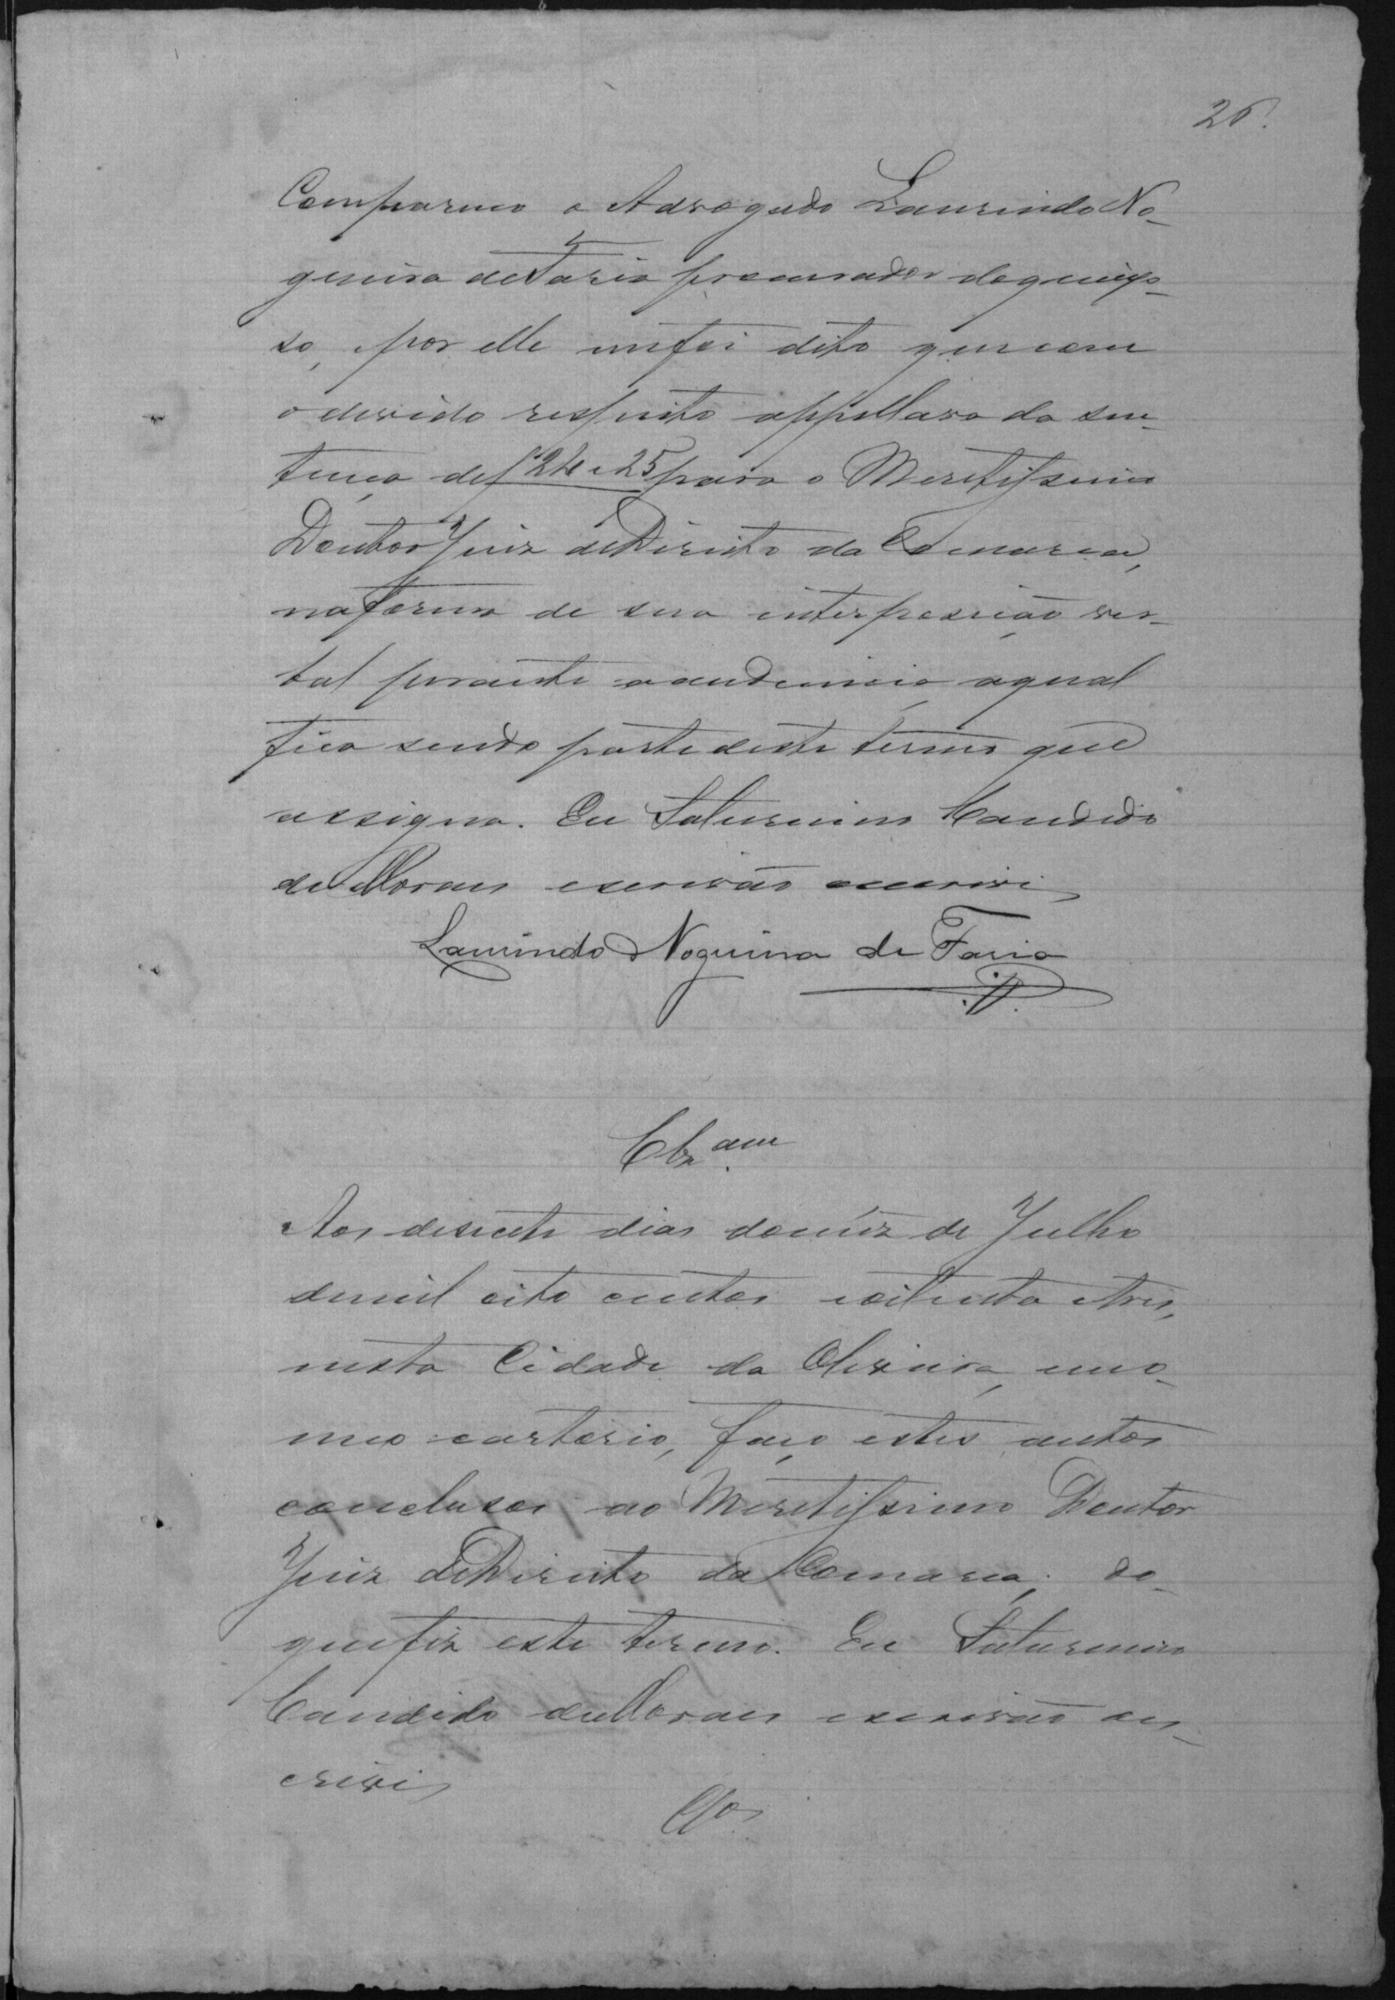 26.
Compareceo o Advogado Laurindo No-
gueira de Faria procurador do queixo-
so, e por elle me foi dito que com
o devido respeito appellava da sen-
tença de f. 24 e 25 para o Meretissimo
Doutor Juiz de Direito da Comarca,
na forma de sua interposição ver-
bal perante a audiencia, a qual
fica sendo parte deste termo que
assigna. Eu Saturnino Candido
de Moraes escrivão escrevi
Laurindo Nogueira de Faria
Clzam
Aos desesete dias do mez de Julho
de mil oito centos e oitenta e tres,
nesta Cidade da Oliveira, em o
meo cartorio, faço estes autos
conclusos ao Meretissimo Doutor
Juiz de Direito da Comarca; do
que fiz este termo. Eu Saturnino
Candido de Moraes escrivão es-
crevi
Clos